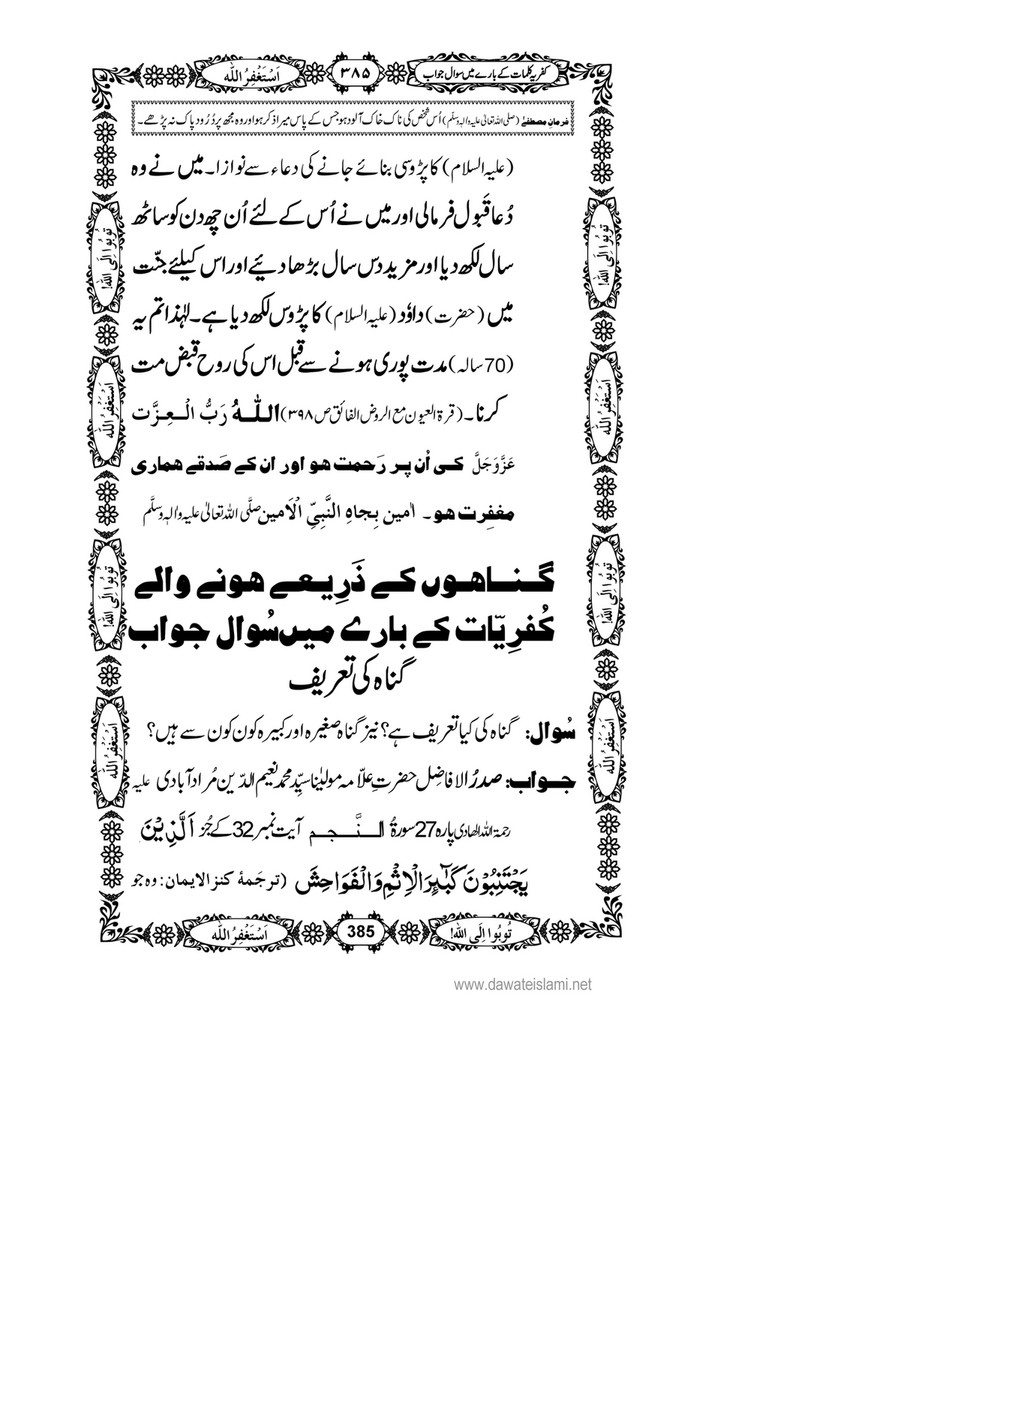 کفریہ کلمات کے بارے میں سوال جواب
۳۸۵
اَسْتَغْفِرُ اللّٰہ
فرمانِ مصطفٰے (صلی اللہ تعالیٰ علیہ والہٖ وسلم) اُس شخص کی ناک خاک آلود ہو جس کے پاس میرا ذکر ہو اور وہ مجھ پر دُرُود پاک نہ پڑھے۔
(علیہ السلام) کا پڑوسی بنائے جانے کی دعاء سے نوازا۔ میں نے وہ
دُعا قَبول فرمالی اور میں نے اُس کے لئے اُن چھ دن کو ساٹھ
سال لکھ دیا اور مزید دس سال بڑھا دئیے اور اس کیلئے جنّت
میں (حضرت) داوٗد (علیہ السلام) کا پڑوس لکھ دیا ہے۔ لہٰذا تم یہ
(70 سالہ) مدت پوری ہونے سے قبل اس کی روح قبض مت
کرنا۔ (قرۃ العیون مع الروض الفائق ص ۳۹۸) اللّٰہُ رَبُّ الْعِزَّت
عَزَّوَجَلَّ کی اُن پر رَحمت ہو اور ان کے صَدقے ہماری
مغفِرت ہو۔ اٰمین بِجاہِ النَّبِیِّ الْاَمین صلَّی اللہ تعالیٰ علیہ واٰلہٖ وسلَّم
گناہوں کے ذَرِیعے ہونے والے
کُفرِیّات کے بارے میں سُوال جواب
گناہ کی تعریف
سُوال: گناہ کی کیا تعریف ہے؟ نیز گناہ صغیرہ اور کبیرہ کون کون سے ہیں؟
جواب: صدرُ الافاضِل حضرتِ علّامہ مولیٰنا سیِّد محمد نعیم الدّین مُراد آبادی علیہ
رحمۃ اللہ الھادی پارہ 27 سورۃُ النَّجم آیت نمبر 32 کے جُز اَلَّذِیْنَ
یَجْتَنِبُوْنَ کَبٰٓئِرَ الْاِثْمِ وَ الْفَوَاحِشَ (ترجَمۂ کنز الایمان: وہ جو
تُوبُوا اِلَی اللّٰہ!
385
اَسْتَغْفِرُ اللّٰہ
تُوبُوا اِلَی اللّٰہ!
اَسْتَغْفِرُ اللّٰہ
تُوبُوا اِلَی اللّٰہ!
اَسْتَغْفِرُ اللّٰہ
تُوبُوا اِلَی اللّٰہ!
اَسْتَغْفِرُ اللّٰہ
تُوبُوا اِلَی اللّٰہ!
اَسْتَغْفِرُ اللّٰہ
www.dawateislami.net